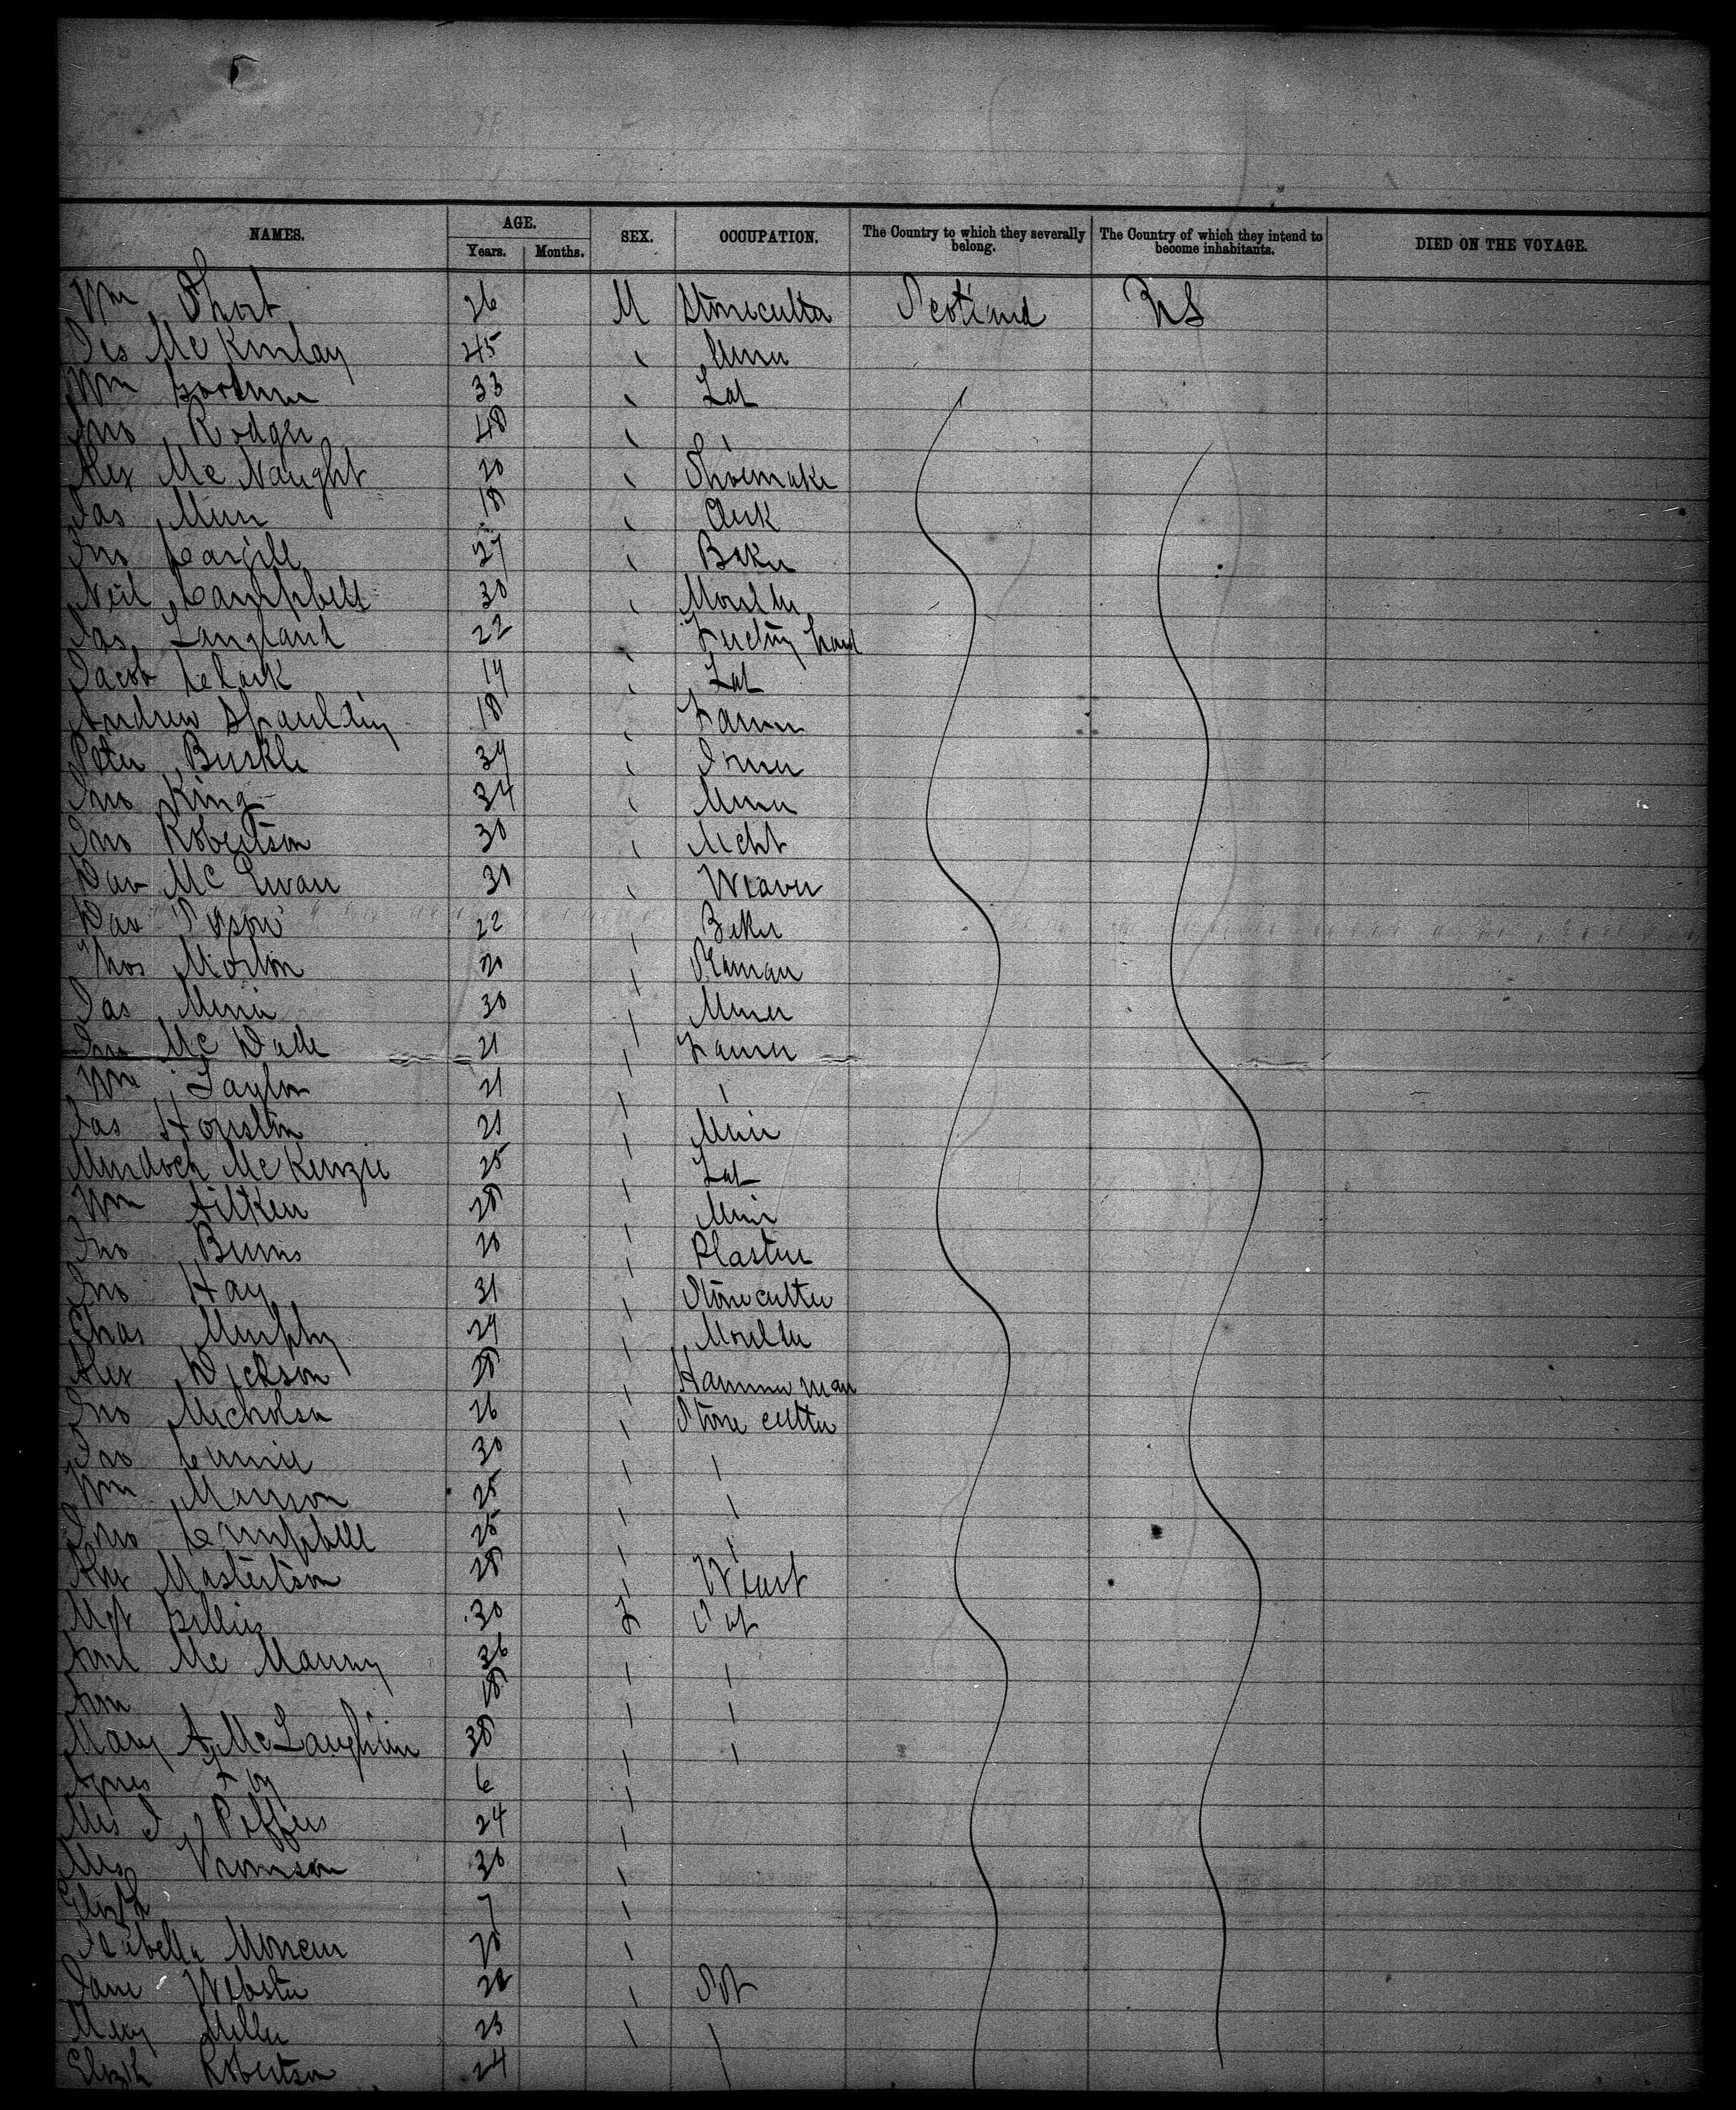 5
NAMES. AGE. Years. Months. SEX. OCCUPATION. The Country to which they severally belong. The Country of which they intend to become inhabitants. DIED ON THE VOYAGE.
Wm Short 26 M Stonecutter Scotland US
Jas McKinlay 45 Miner
Wm 33 Lab
Jno Rodger 48
Alex McNaught 20 Shoemaker
Jas Muir 18 Clerk
Jno Cargill 27 Baker
Neil Campbell 30 Moulder
Jas Langland 22
Jacob Clark 19 Lab
Andrew Spaulding 18 Farmer
Peter Buskle 39
Jno King 34 Miner
Jno Robertson 30 Mcht
Dav McEwan 31 Weaver
Dav Tyson 22 Baker
Thos Morton 20
Jas 30 Miner
Jno McDade 21 Farmer
Wm Taylor 21
Jas Houston 21 Miner
Murdoch McKenzie 25 Lab
Wm Aitken 28 Miner
Jno Burns 20 Plasterer
Jno Hay 31 Stonecutter
Chas Murphy 29 Moulder
Alex Dickson 28 Hammerman
Jno Nicholson 26 Stone cutter
Jno Currie 30
Wm 25
Jno Campbell 25
Masterton 28
Mgt Gillies 30 F
Mc 36
Ann 18
Mary A McLaughlin 38
Agnes Foy 6
Mrs J Peffers 24
Mrs Thomson 30
Elizth 7
Isabella 20
Jane Webster 22
Mary Miller 23
Elizth Robertson 24